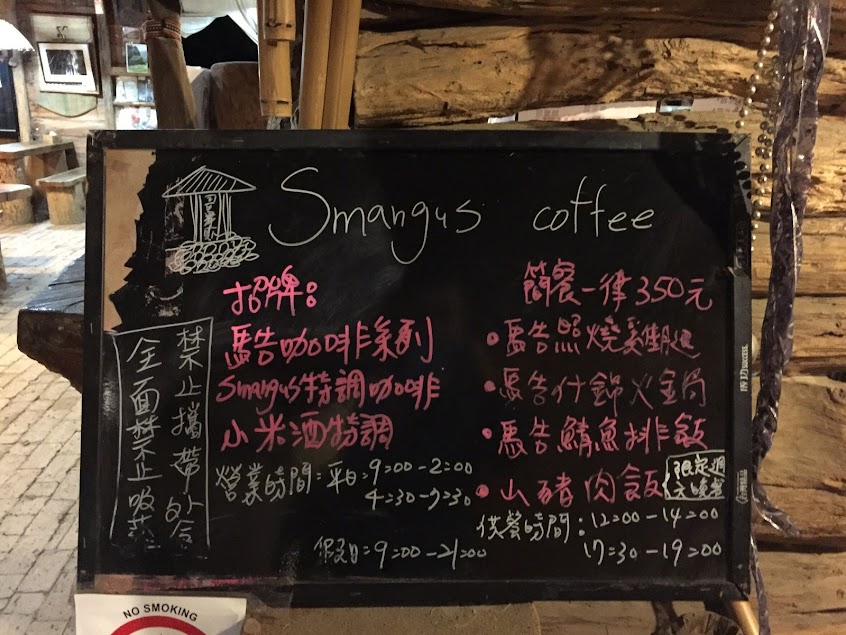 Smangus coffee
招牌:
馬告咖啡系列
Smangus特調咖啡
小米酒特調
營業時間:平日:9:00-2:00
4:30-9:30
假日:9:00-21:00
簡餐一律350元
•馬告照燒雞腿
•馬告什錦火鍋
•馬告鯖魚排飯
•山豬肉飯
限定週
供餐時間:12:00-14:00
17:30-19:00
禁止攜帶外食
全面禁止吸菸
NO SMOKING